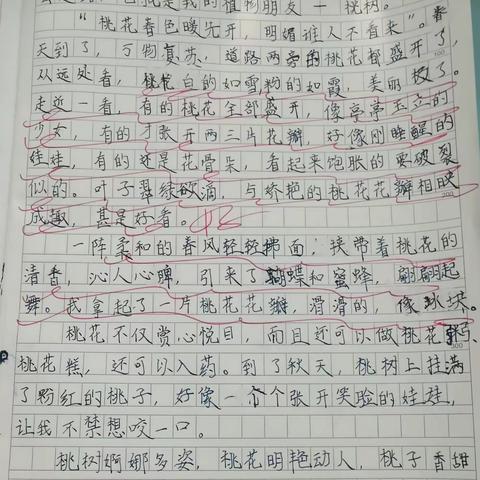 就是我的植物朋友一桃树。
“桃花春色暖先开，明媚谁人不看来”。春
天到了，万物复苏，道路两旁的桃花都盛开了，
从远处看，桃花白的如雪粉的如霞，美丽极了。
走近一看，有的桃花全部盛开，像亭亭玉立的
少女，有的才张开两三片花瓣，好像刚睡醒的
娃娃，有的还是花骨朵，看起来饱胀的要破裂
似的。叶子翠绿欲滴，与娇艳的桃花花瓣相映
成趣，甚是好看。
一阵柔和的春风轻轻拂面，挟带着桃花的
清香，沁人心脾，引来了蝴蝶和蜜蜂，翩翩起
舞。我拿起了一片桃花花瓣，滑滑的，像冰块。
桃花不仅赏心悦目，而且还可以做桃花
桃花糕，还可以入药。到了秋天，桃树上挂满
了粉红的桃子，好像一个个张开笑脸的娃娃，
让我不禁想咬一口。
桃树婀娜多姿，桃花明艳动人，桃子香甜